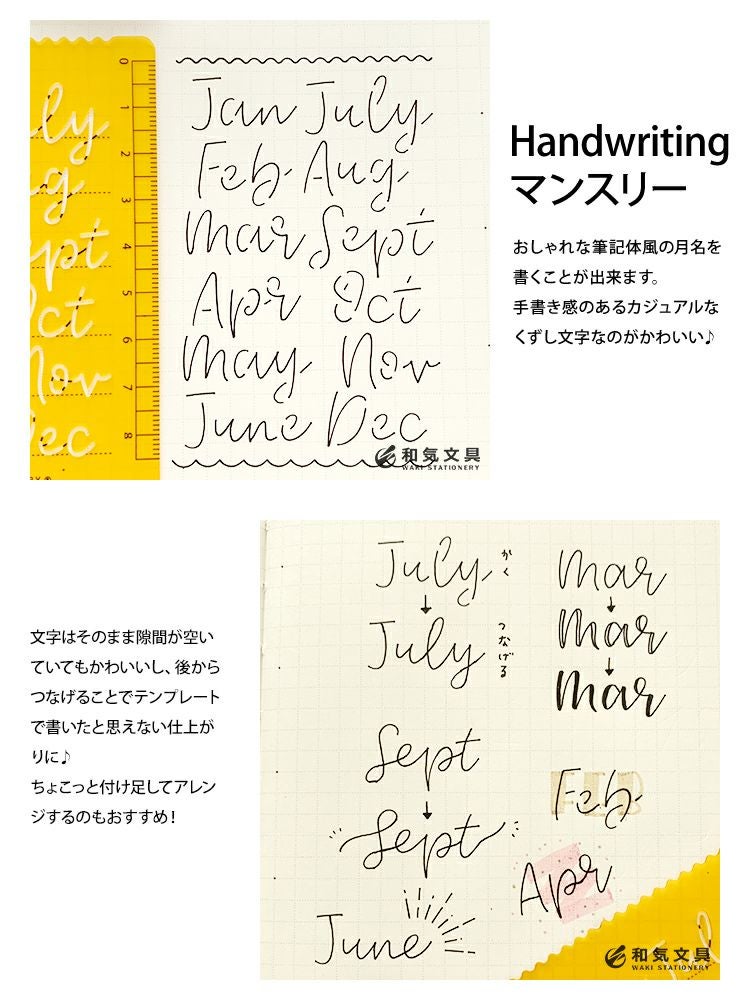 0
1
2
3
4
5
6
7
8
Jan July
Feb Aug
Mar Sept
Apr Oct
May Nov
June Dec
和気文具
WAKI STATIONERY
Handwriting
マンスリー
おしゃれな筆記体風の月名を
書くことが出来ます。
手書き感のあるカジュアルな
くずし文字なのがかわいい♪
文字はそのまま隙間が空い
ていてもかわいいし、後から
つなげることでテンプレート
で書いたと思えない仕上が
りに♪
ちょこっと付け足してアレン
ジするのもおすすめ！
July
かく
July
つなげる
Sept
Sept
June
Mar
Mar
Mar
Feb
Apr
和気文具
WAKI STATIONERY